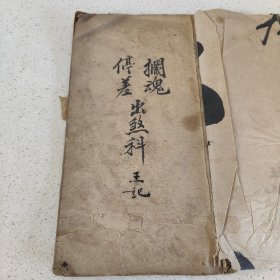 攔魂
停差
出煞科
王記